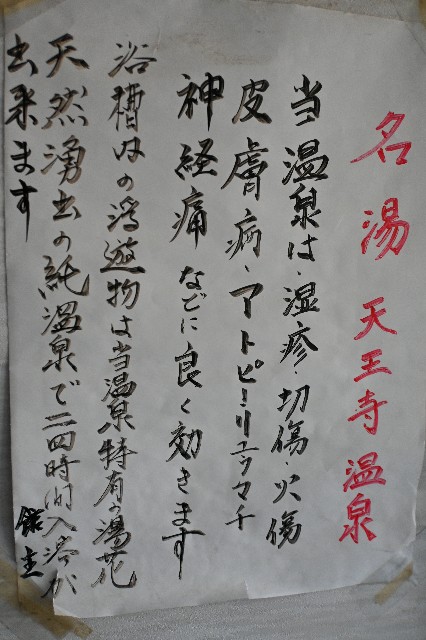 名湯 天王寺温泉
当温泉は、湿疹・切傷・火傷
皮膚病・アトピー・リュウマチ
神経痛などに良く効きます
浴槽内の浮遊物は当温泉特有の湯花
天然湧出の純温泉で二四時間入浴が
出来ます
館主